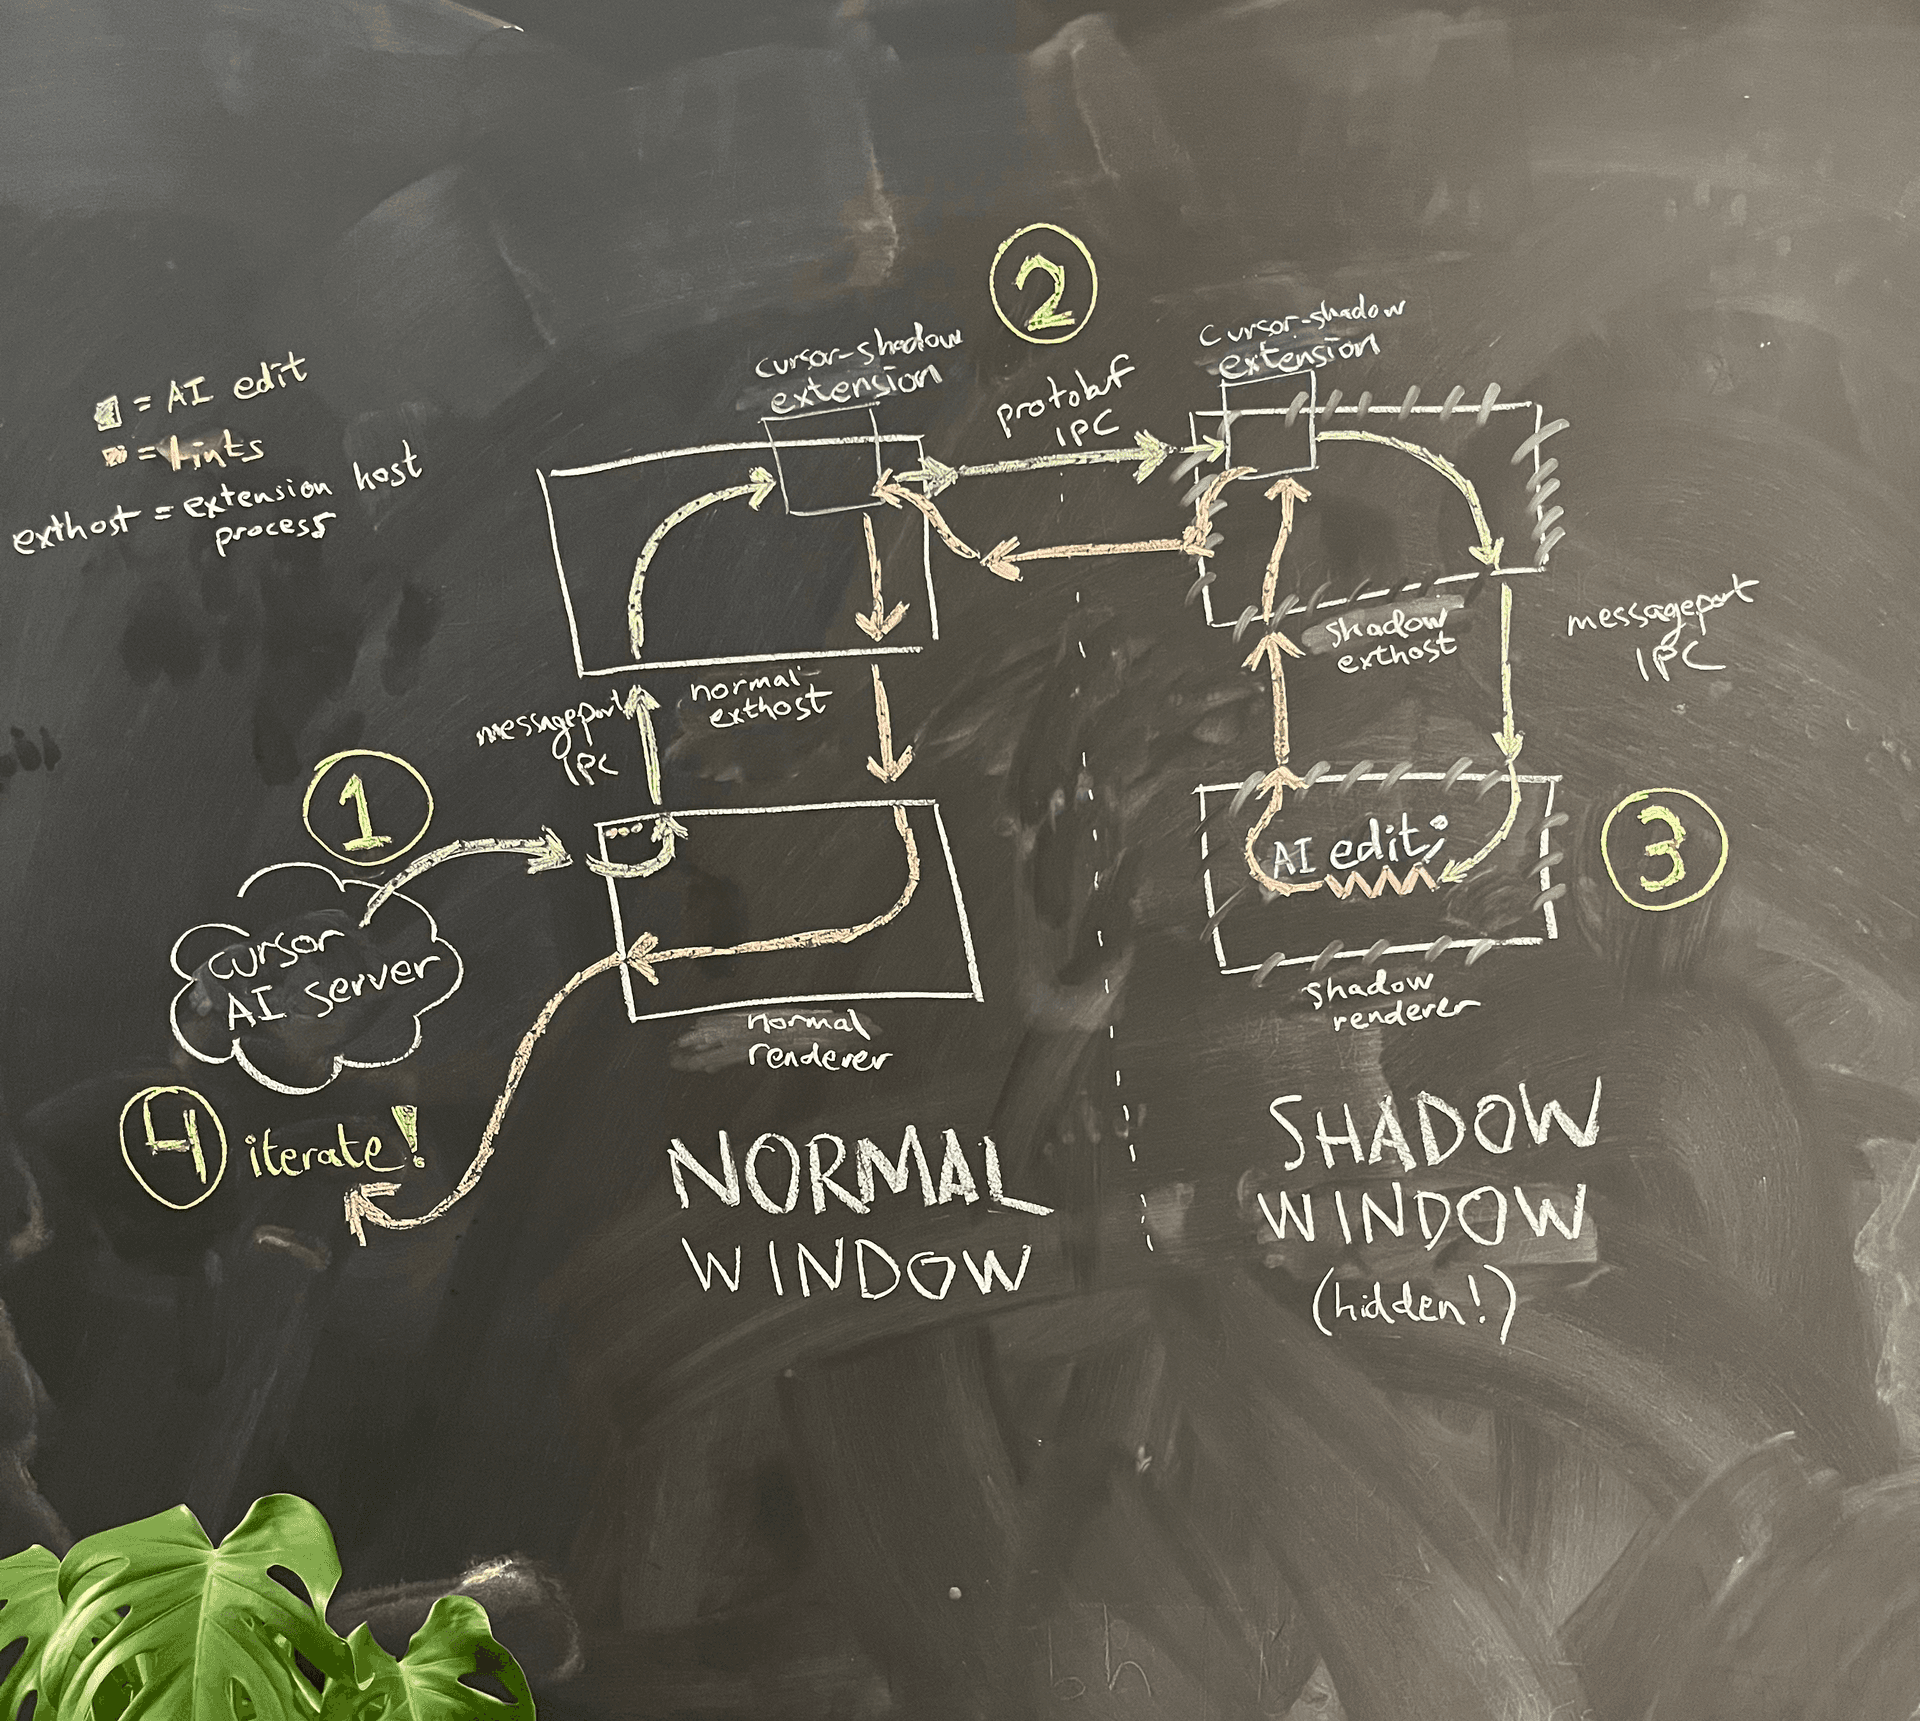 = AI edit
= lints
exthost = extension host
process
2
cursor-shadow
extension
protobuf
IPC
cursor-shadow
extension
normal
exthost
messageport
IPC
shadow
exthost
messageport
IPC
1
cursor
AI server
AI edit;
3
normal
renderer
shadow
renderer
4 iterate!
NORMAL
WINDOW
SHADOW
WINDOW
(hidden!)